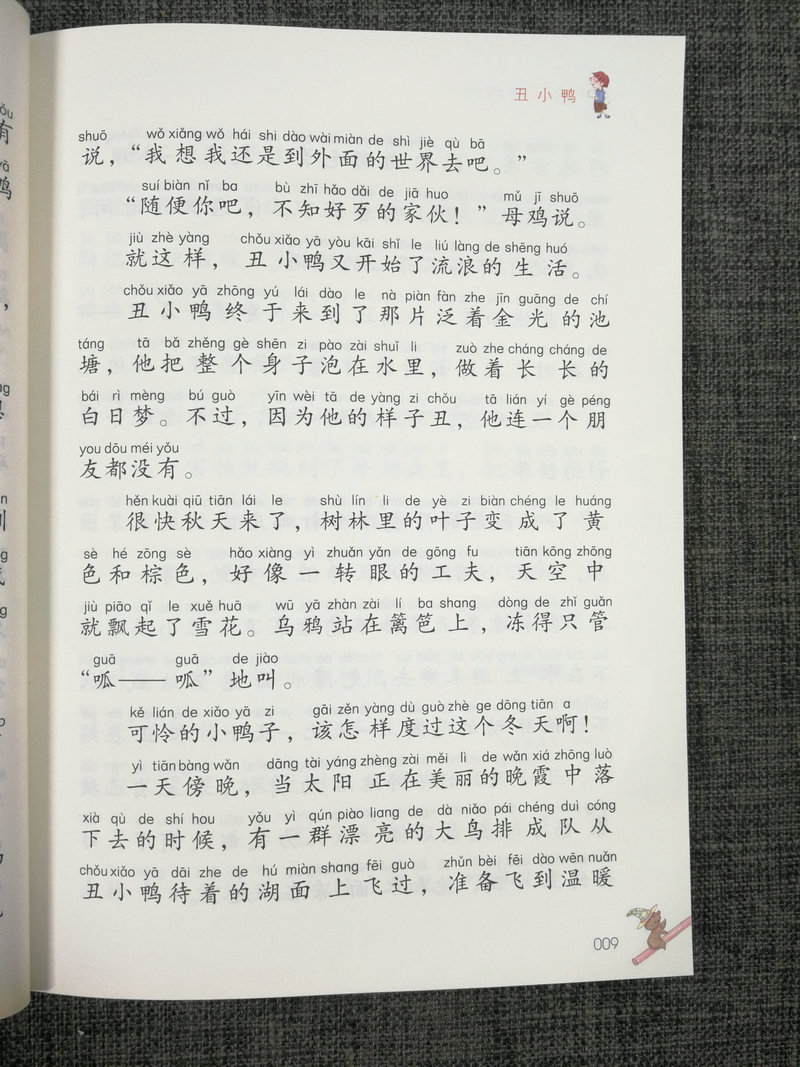 丑小鸭
shuō wǒ xiǎng wǒ hái shi dào wài miàn de shì jiè qù bā
说，“我想我还是到外面的世界去吧。”
suí biàn nǐ ba bù zhī hǎo dǎi de jiā huo mǔ jī shuō
“随便你吧，不知好歹的家伙！”母鸡说。
jiù zhè yàng chǒu xiǎo yā yòu kāi shǐ le liú làng de shēng huó
就这样，丑小鸭又开始了流浪的生活。
chǒu xiǎo yā zhōng yú lái dào le nà piàn fàn zhe jīn guāng de chí
丑小鸭终于来到了那片泛着金光的池
táng tā bǎ zhěng gè shēn zi pào zài shuǐ li zuò zhe cháng cháng de
塘，他把整个身子泡在水里，做着长长的
bái rì mèng bú guò yīn wèi tā de yàng zi chǒu tā lián yí gè péng
白日梦。不过，因为他的样子丑，他连一个朋
you dōu méi yǒu
友都没有。
hěn kuài qiū tiān lái le shù lín li de yè zi biàn chéng le huáng
很快秋天来了，树林里的叶子变成了黄
sè hé zōng sè hǎo xiàng yì zhuǎn yǎn de gōng fu tiān kōng zhōng
色和棕色，好像一转眼的工夫，天空中
jiù piāo qǐ le xuě huā wū yā zhàn zài lí ba shang dòng de zhǐ guǎn
就飘起了雪花。乌鸦站在篱笆上，冻得只管
guā guā de jiào
“呱——呱”地叫。
kě lián de xiǎo yā zi gāi zěn yàng dù guò zhè ge dōng tiān a
可怜的小鸭子，该怎样度过这个冬天啊！
yì tiān bàng wǎn dāng tài yáng zhèng zài měi lì de wǎn xiá zhōng luò
一天傍晚，当太阳正在美丽的晚霞中落
xià qù de shí hou yǒu yì qún piào liang de dà niǎo pái chéng duì cóng
下去的时候，有一群漂亮的大鸟排成队从
chǒu xiǎo yā dāi zhe de hú miàn shang fēi guò zhǔn bèi fēi dào wēn nuǎn
丑小鸭待着的湖面上飞过，准备飞到温暖
009